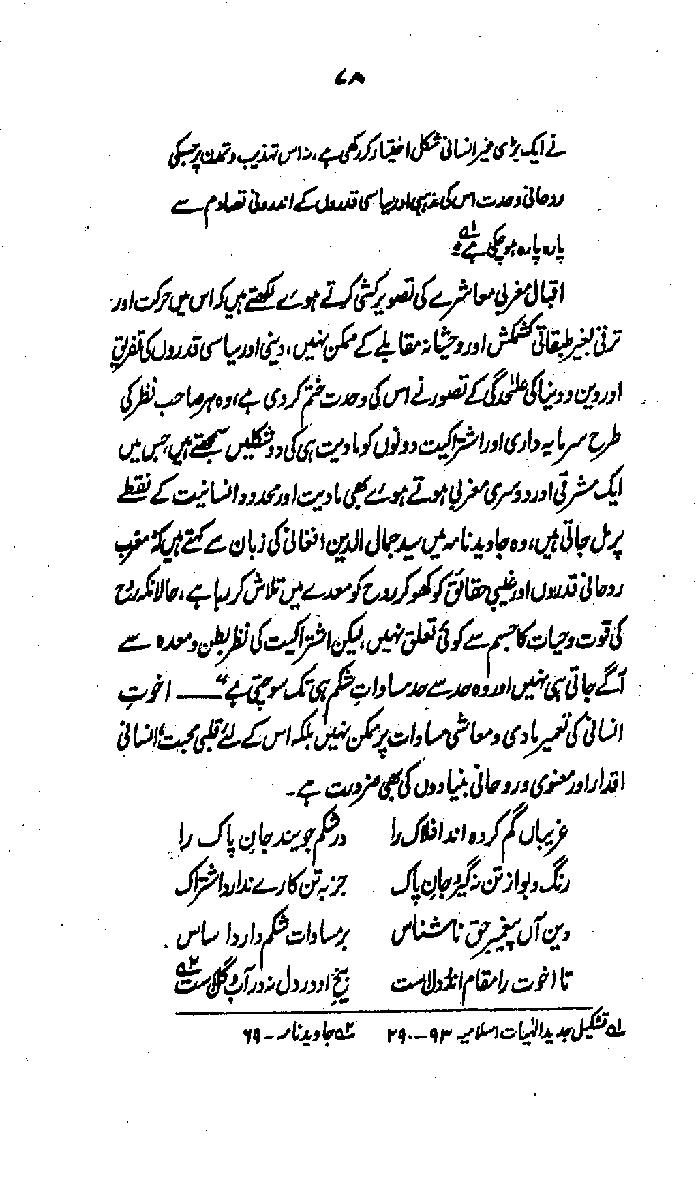 ۷۸
نے ایک بڑی غیر انسانی شکل اختیار کر رکھی ہے، نہ اس تہذیب و تمدن پر جسکی
روحانی وحدت اس کی مذہبی اور سیاسی قدروں کے اندرونی تصادم سے
پارہ پارہ ہو چکی ہے۔ؔ۱
اقبال مغربی معاشرے کی تصویر کشی کرتے ہوے لکھتے ہیں کہ اس میں حرکت اور
ترقی بغیر طبقاتی کشمکش اور وحشیانہ مقابلے کے ممکن نہیں، دینی اور سیاسی قدروں کی تفریق
اور دین و دنیا کی علٰحدگی کے تصور نے اس کی وحدت ختم کر دی ہے، وہ ہر صاحب نظر کی
طرح سرمایہ داری اور اشتراکیت دونوں کو مادیت ہی کی دو شکلیں سمجھتے ہیں، جس میں
ایک مشرقی اور دوسری مغربی ہوتے ہوے بھی مادیت اور محدود انسانیت کے نقطے
پر مل جاتی ہیں، وہ جاوید نامہ میں سید جمال الدین افغانی کی زبان سے کہتے ہیں کہ "مغرب
روحانی قدروں اور غیبی حقائق کو کھو کر روح کو معدے میں تلاش کر رہا ہے، حالانکہ روح
کی قوت و حیات کا جسم سے کوئی تعلق نہیں، لیکن اشتراکیت کی نظر بطن و معدہ سے
آگے جاتی ہی نہیں اور وہ حد سے حد مساواتِ شکم ہی تک سوچتی ہے" ــــ اخوتِ
انسانی کی تعمیر مادی و معاشی مساوات پر ممکن نہیں بلکہ اس کے لئے قلبی محبت، انسانی
اقدار اور معنوی و روحانی بنیادوں کی بھی ضرورت ہے۔
غربیاں گم کردہ اند افلاک را در شکم جویند جانِ پاک را
رنگ و بو از تن نہ گیرد جانِ پاک جز بہ تن کارے ندارد اشتراک
دین آں پیغمبر حق ناشناس بر مساوات شکم دارد اساس
تا اخوت را مقام اندر دل است بیخ او در دل نہ در آب و گل است ؔ۲
ؔ۱ تشکیل جدید الٰہیات اسلامیہ ۹۳-۲۹۰ ؔ۲ جاوید نامہ - ۶۹